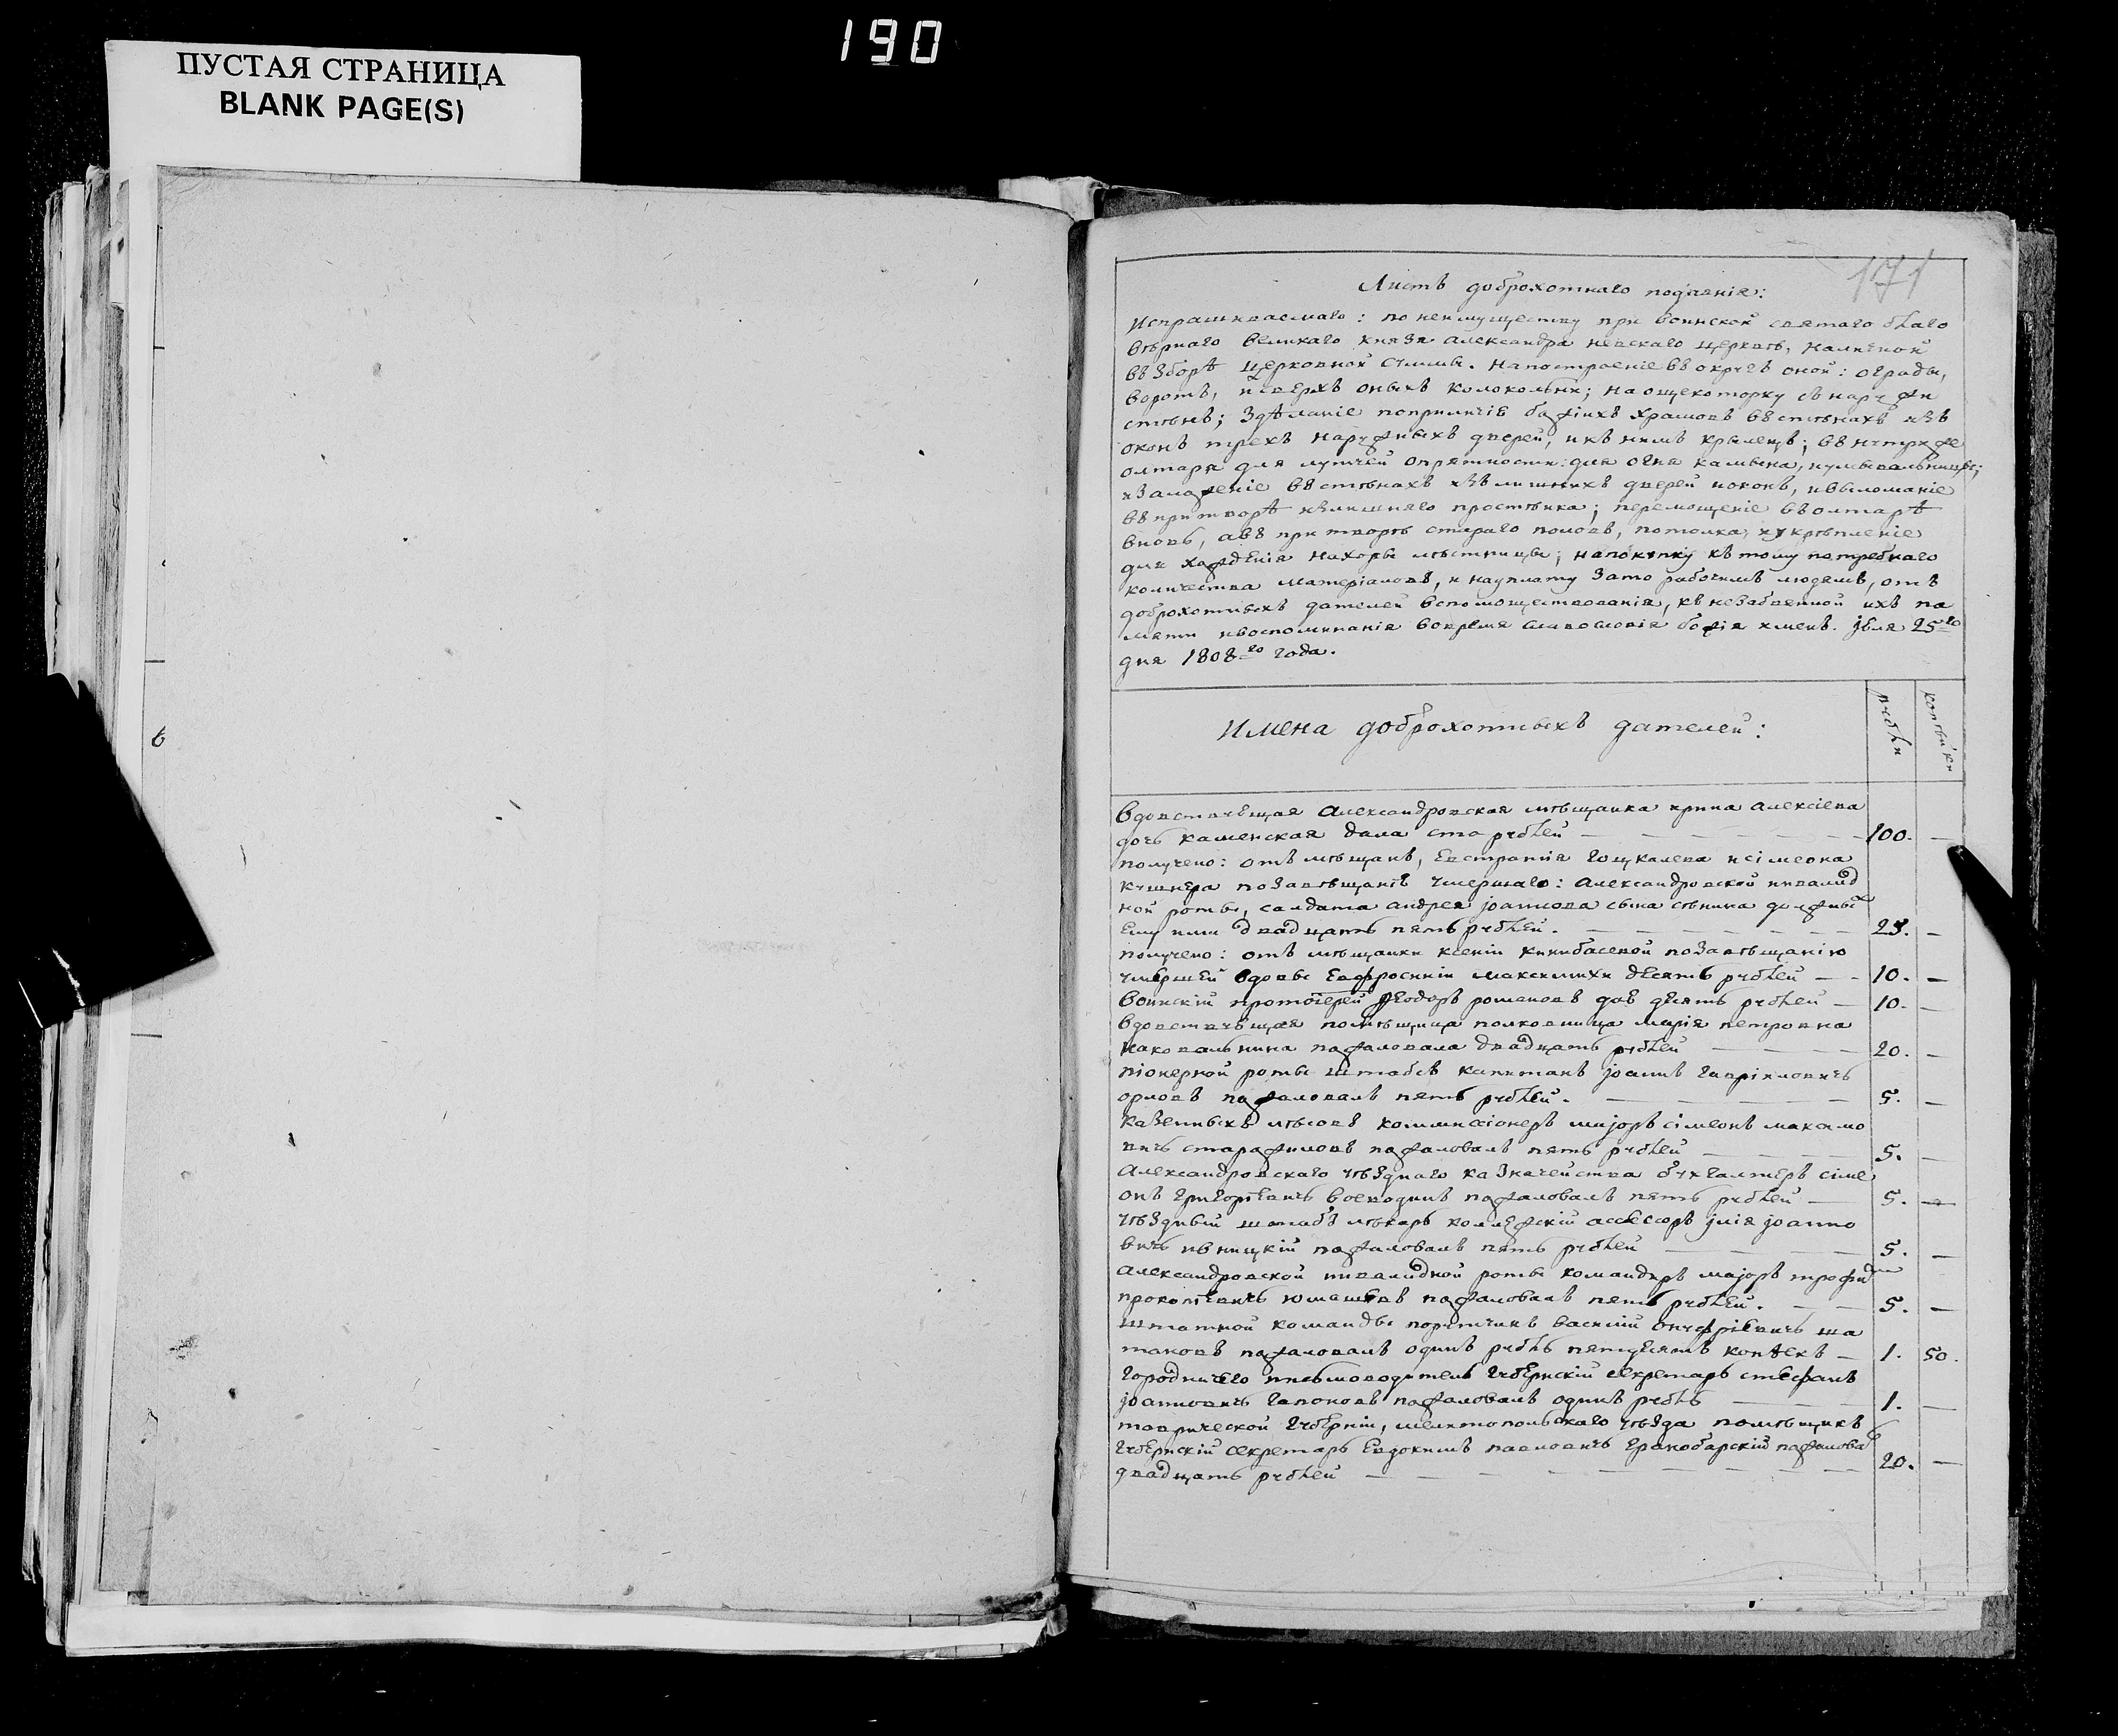 190
ПУСТАЯ СТРАНИЦА
BLANK PAGE(S)
171
Листъ доброхотнаго подаянія:
Испрашиваемаго: по неимуществу при воинской святаго благо
вѣрнаго великаго князя александра невскаго церквѣ, наличной
въ зборѣ церковной суммы. на построеніе въ округъ оной: ограды,
воротъ, и сверхъ оныхъ колокольни; на ощекоторку снаружи
стѣнъ; здѣланіе поприличія божіихъ храмовъ въ стѣнахъ изъ
оконъ трехъ наружныхъ дверей, и къ нимъ крылецъ; внутрь же
олтаря для лутчей опрятности: для огня камына, и умывальницы;
и заложеніе въ стѣнахъ изълишнихъ дверей и оконъ, и выломаніе
въ притворѣ изълишняго простѣнка; перемощеніе въ олтарѣ
вновь, а въ притворѣ стараго половъ, потолка, и укрѣпленіе
для хожденія на хоры лѣстницы; на покупку къ тому потребнаго
количества матеріаловъ, и на уплату за то рабочимъ людямъ, отъ
доброхотныхъ дателей вспомоществованія, къ незабвенной ихъ па
мяти и воспоминанія вовремя славословія божія именъ. Іюля 25го
дня 1808го года.
Имена доброхотныхъ дателей:
рубли
копѣйки
Вдовствующая александровская мѣщанка ирина алексіева
дочь каменская дала сто рублей 100.
получено: отъ мѣщанъ, Евстратія гоцкалева и сімеона
кушнера по завѣщанію умершаго: александровской инвалид
ной роты, солдата андрея іоаннова сына сѣника должны
ему ими двадцать пять рублей. 25.
получено: отъ мѣщанки ксеніи кинибасевой по завѣщанію
умершей вдовы Евфросиніи максимихи десять рублей 10.
воинскій протоіерей Феодоръ романовъ далъ десять рублей 10.
вдовствующая помѣщица полковница марія петровна
наковальнина пожаловала двадцать рублей 20.
піонерной роты штабсъ капитанъ іоаннъ гавріиловичъ
орловъ пожаловалъ пять рублей. 5.
казенныхъ лѣсовъ коммисіонеръ маіоръ сімеонъ макаро
вичъ старажиловъ пожаловалъ пять рублей 5.
александровскаго уѣзднаго казначейства бухгалтеръ сіме
онъ григоріевичъ воеводинъ пожаловалъ пять рублей 5.
уѣздный штабъ лѣкарь коллежскій ассессоръ ілія іоанно
вичъ ивницкій пожаловалъ пять рублей 5.
александровской инвалидной роты командиръ маіоръ трофим
прокопіевичъ юмашевъ пожаловалъ пять рублей. 5.
штатной команды порутчикъ василій онуфріевичъ ша
таковъ пожаловалъ одинъ рубль пятдесятъ копѣекъ 1. 50.
городничего письмоводитель губернскій секретарь стефанъ
іоанновичъ гапоновъ пожаловалъ одинъ рубль 1.
таврической губерніи, мелитопольскаго уѣзда помѣщикъ
губернскій секретарь Евдокимъ павловичъ гранобарскій пожаловалъ
двадцать рублей 20.